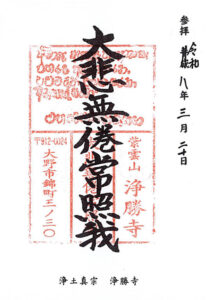 参拝 令和 八年 三月 二十日
大悲無倦常照我
紫雲山 浄勝寺
〒912-0024
大野市錦町
浄土真宗 浄勝寺